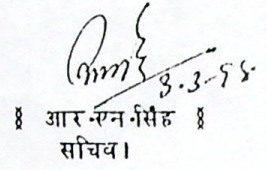 3.3.98
आर.एन.सिंह
सचिव।